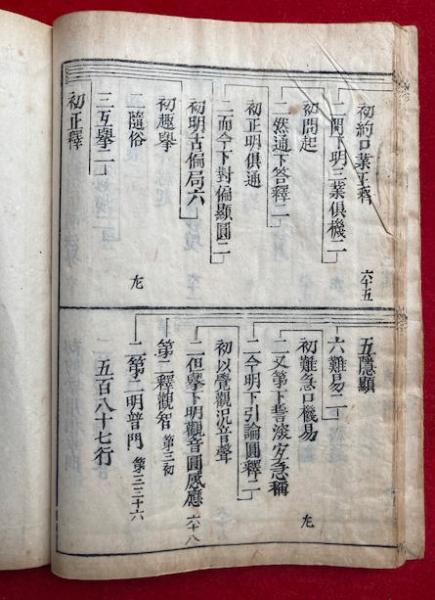 初約口業正釋
二問下明三業俱機二 六十五
初問起
二然通下答釋二
初正明俱通
二而今下對偏顯圓二
初明古偏局六
初趣舉
二隨俗 九
三互舉二
初正釋
五隱顯
六難易二
初難急口機易
二又第下誓深安急稱 九
二今明下引論圓釋二
初以覺觀況音聲
二但舉下明觀音圓感應 六十八
第二釋觀智 第三初
二第二明普門 第三三十六
五百八十七行